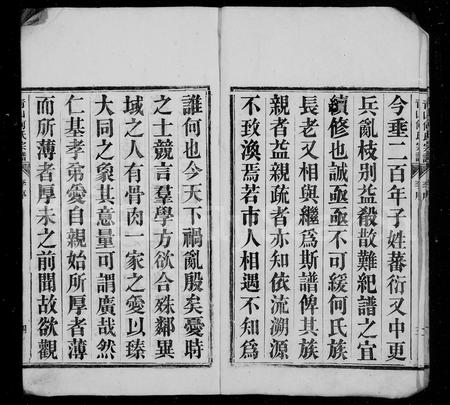 今垂二百年子姓蕃衍又中更
兵亂枝別益殺散難紀譜之宜
續修也誠亟亟不可緩何氏族
長老又相與繼爲斯譜俾其族
親者益親疏者亦知依流溯源
不致渙焉若市人相遇不知爲
誰何也今天下禍亂殷矣憂時
之士競言羣學方欲合殊鄰異
域之人有骨肉一家之愛以臻
大同之象其意量可謂廣哉然
仁基孝弟愛自親始所厚者薄
而所薄者厚未之前聞故欲觀